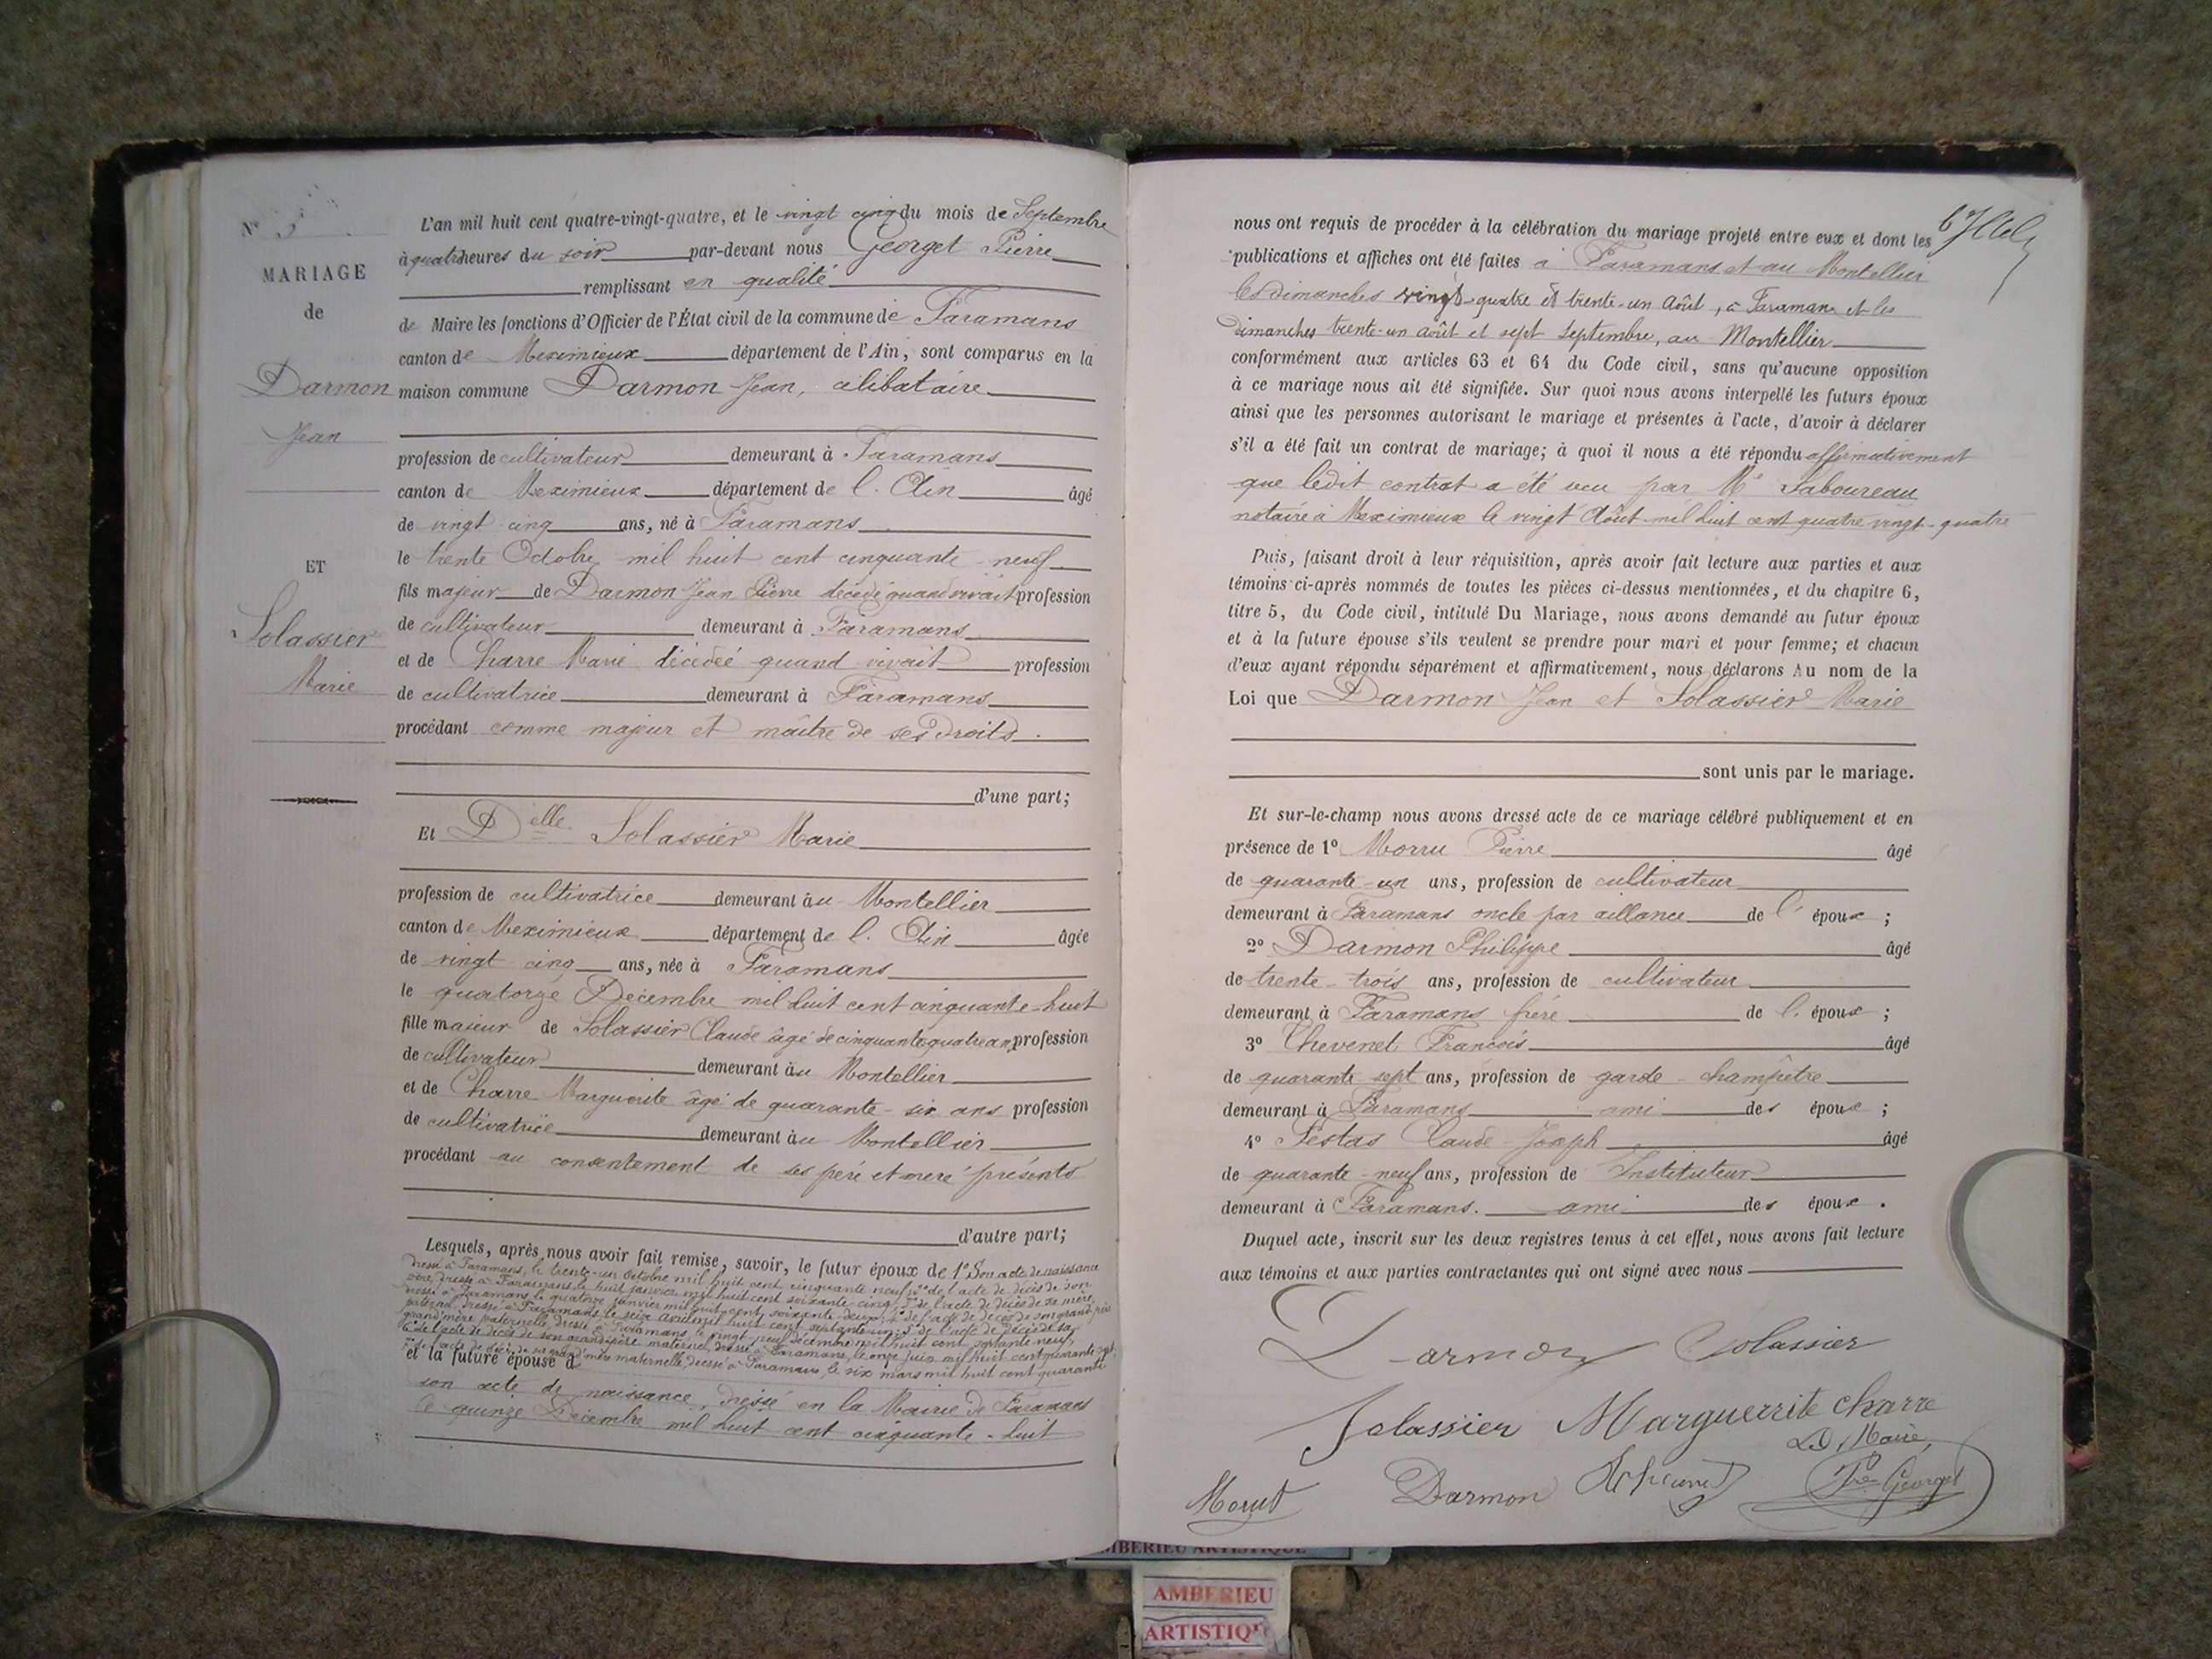 N° 5
MARIAGE
de
Darmon
Jean
ET
Solassier
Marie
L'an mil huit cent quatre-vingt-quatre, et le vingt cinq du mois de Septembre
à quatre heures du soir par-devant nous Georget Pierre
remplissant en qualité
de Maire les fonctions d'Officier de l'État civil de la commune de Faramans
canton de Meximieux département de l'Ain, sont comparus en la
maison commune Darmon Jean, célibataire
profession de cultivateur demeurant à Faramans
canton de Meximieux département de l'Ain âgé
de vingt cinq ans, né à Faramans
le trente Octobre mil huit cent cinquante-neuf
fils majeur de Darmon Jean Pierre décédé quand vivait profession
de cultivateur demeurant à Faramans
et de Charre Marie décédée quand vivait profession
de cultivatrice demeurant à Faramans
procédant comme majeur et maître de ses droits.
d'une part;
Et Delle Solassier Marie
profession de cultivatrice demeurant au Montellier
canton de Meximieux département de l'Ain âgée
de vingt cinq ans, née à Faramans
le quatorze Décembre mil huit cent cinquante-huit
fille majeur de Solassier Claude âgé de cinquante quatre ans profession
de cultivateur demeurant au Montellier
et de Charre Marguerite âgé de quarante-six ans profession
de cultivatrice demeurant au Montellier
procédant au consentement de ses père et mère présents
d'autre part;
Lesquels, après nous avoir fait remise, savoir, le futur époux de 1° Son acte de naissance
dressé à Faramans, le trente-un Octobre mil huit cent cinquante neuf 2° de l'acte de décès de son
père, dressé à Faramans le huit janvier mil huit cent soixante-cinq, 3° de l'acte de décès de sa mère,
dressé à Faramans le quatorze janvier mil huit cent soixante deux, 4° de l'acte de décès de son grand père
paternel, dressé à Faramans le seize avril mil huit cent septante un, 5° de l'acte de décès de sa
grand'mère paternelle, dressé à Faramans, le vingt neuf décembre mil huit cent septante neuf,
6° de l'acte de décès de son grand'père maternel, dressé à Faramans, le onze juin mil huit cent quarante sept,
7° de l'acte de décès de sa grand'mère maternelle dressé à Faramans, le six mars mil huit cent quarante
et la future épouse d
son acte de naissance, dressé en la Mairie de Faramans
le quinze Décembre mil huit cent cinquante-huit
nous ont requis de procéder à la célébration du mariage projeté entre eux et dont les
publications et affiches ont été faites à Faramans et au Montellier
les dimanches vingt-quatre et trente-un Août, à Faramans et les
dimanches trente-un août et sept Septembre, au Montellier
conformément aux articles 63 et 64 du Code civil, sans qu'aucune opposition
à ce mariage nous ait été signifiée. Sur quoi nous avons interpellé les futurs époux
ainsi que les personnes autorisant le mariage et présentes à l'acte, d'avoir à déclarer
s'il a été fait un contrat de mariage; à quoi il nous a été répondu affirmativement
que ledit contrat a été reçu par Me Saboureau
notaire à Meximieux le vingt Août mil huit cent quatre vingt-quatre
Puis, faisant droit à leur réquisition, après avoir fait lecture aux parties et aux
témoins ci-après nommés de toutes les pièces ci-dessus mentionnées, et du chapitre 6,
titre 5, du Code civil, intitulé Du Mariage, nous avons demandé au futur époux
et à la future épouse s'ils veulent se prendre pour mari et pour femme; et chacun
d'eux ayant répondu séparément et affirmativement, nous déclarons Au nom de la
Loi que Darmon Jean et Solassier Marie
sont unis par le mariage.
Et sur-le-champ nous avons dressé acte de ce mariage célébré publiquement et en
présence de 1° Morru Pierre âgé
de quarante-un ans, profession de cultivateur
demeurant à Faramans oncle par aillance de l'époux;
2° Darmon Philippe âgé
de trente-trois ans, profession de cultivateur
demeurant à Faramans frère de l'époux;
3° Chevenet François âgé
de quarante sept ans, profession de garde-champêtre
demeurant à Faramans ami des époux;
4° Festas Claude-Joseph âgé
de quarante-neuf ans, profession de Instituteur
demeurant à Faramans. ami des époux.
Duquel acte, inscrit sur les deux registres tenus à cet effet, nous avons fait lecture
aux témoins et aux parties contractantes qui ont signé avec nous
Darmon Solassier
Solassier Marguerrite charre
Le Maire,
Morru Darmon Pre Georget
AMBERIEU ARTISTIQUE
AMBERIEU
ARTISTIQUE